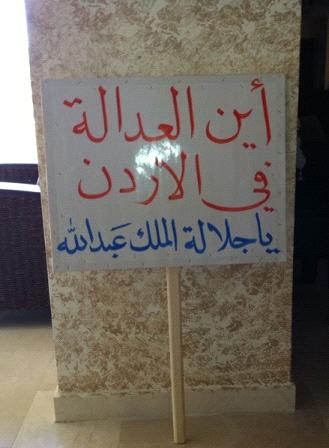 أين العدالة
في الاردن
يا جلالة الملك عَبدالله